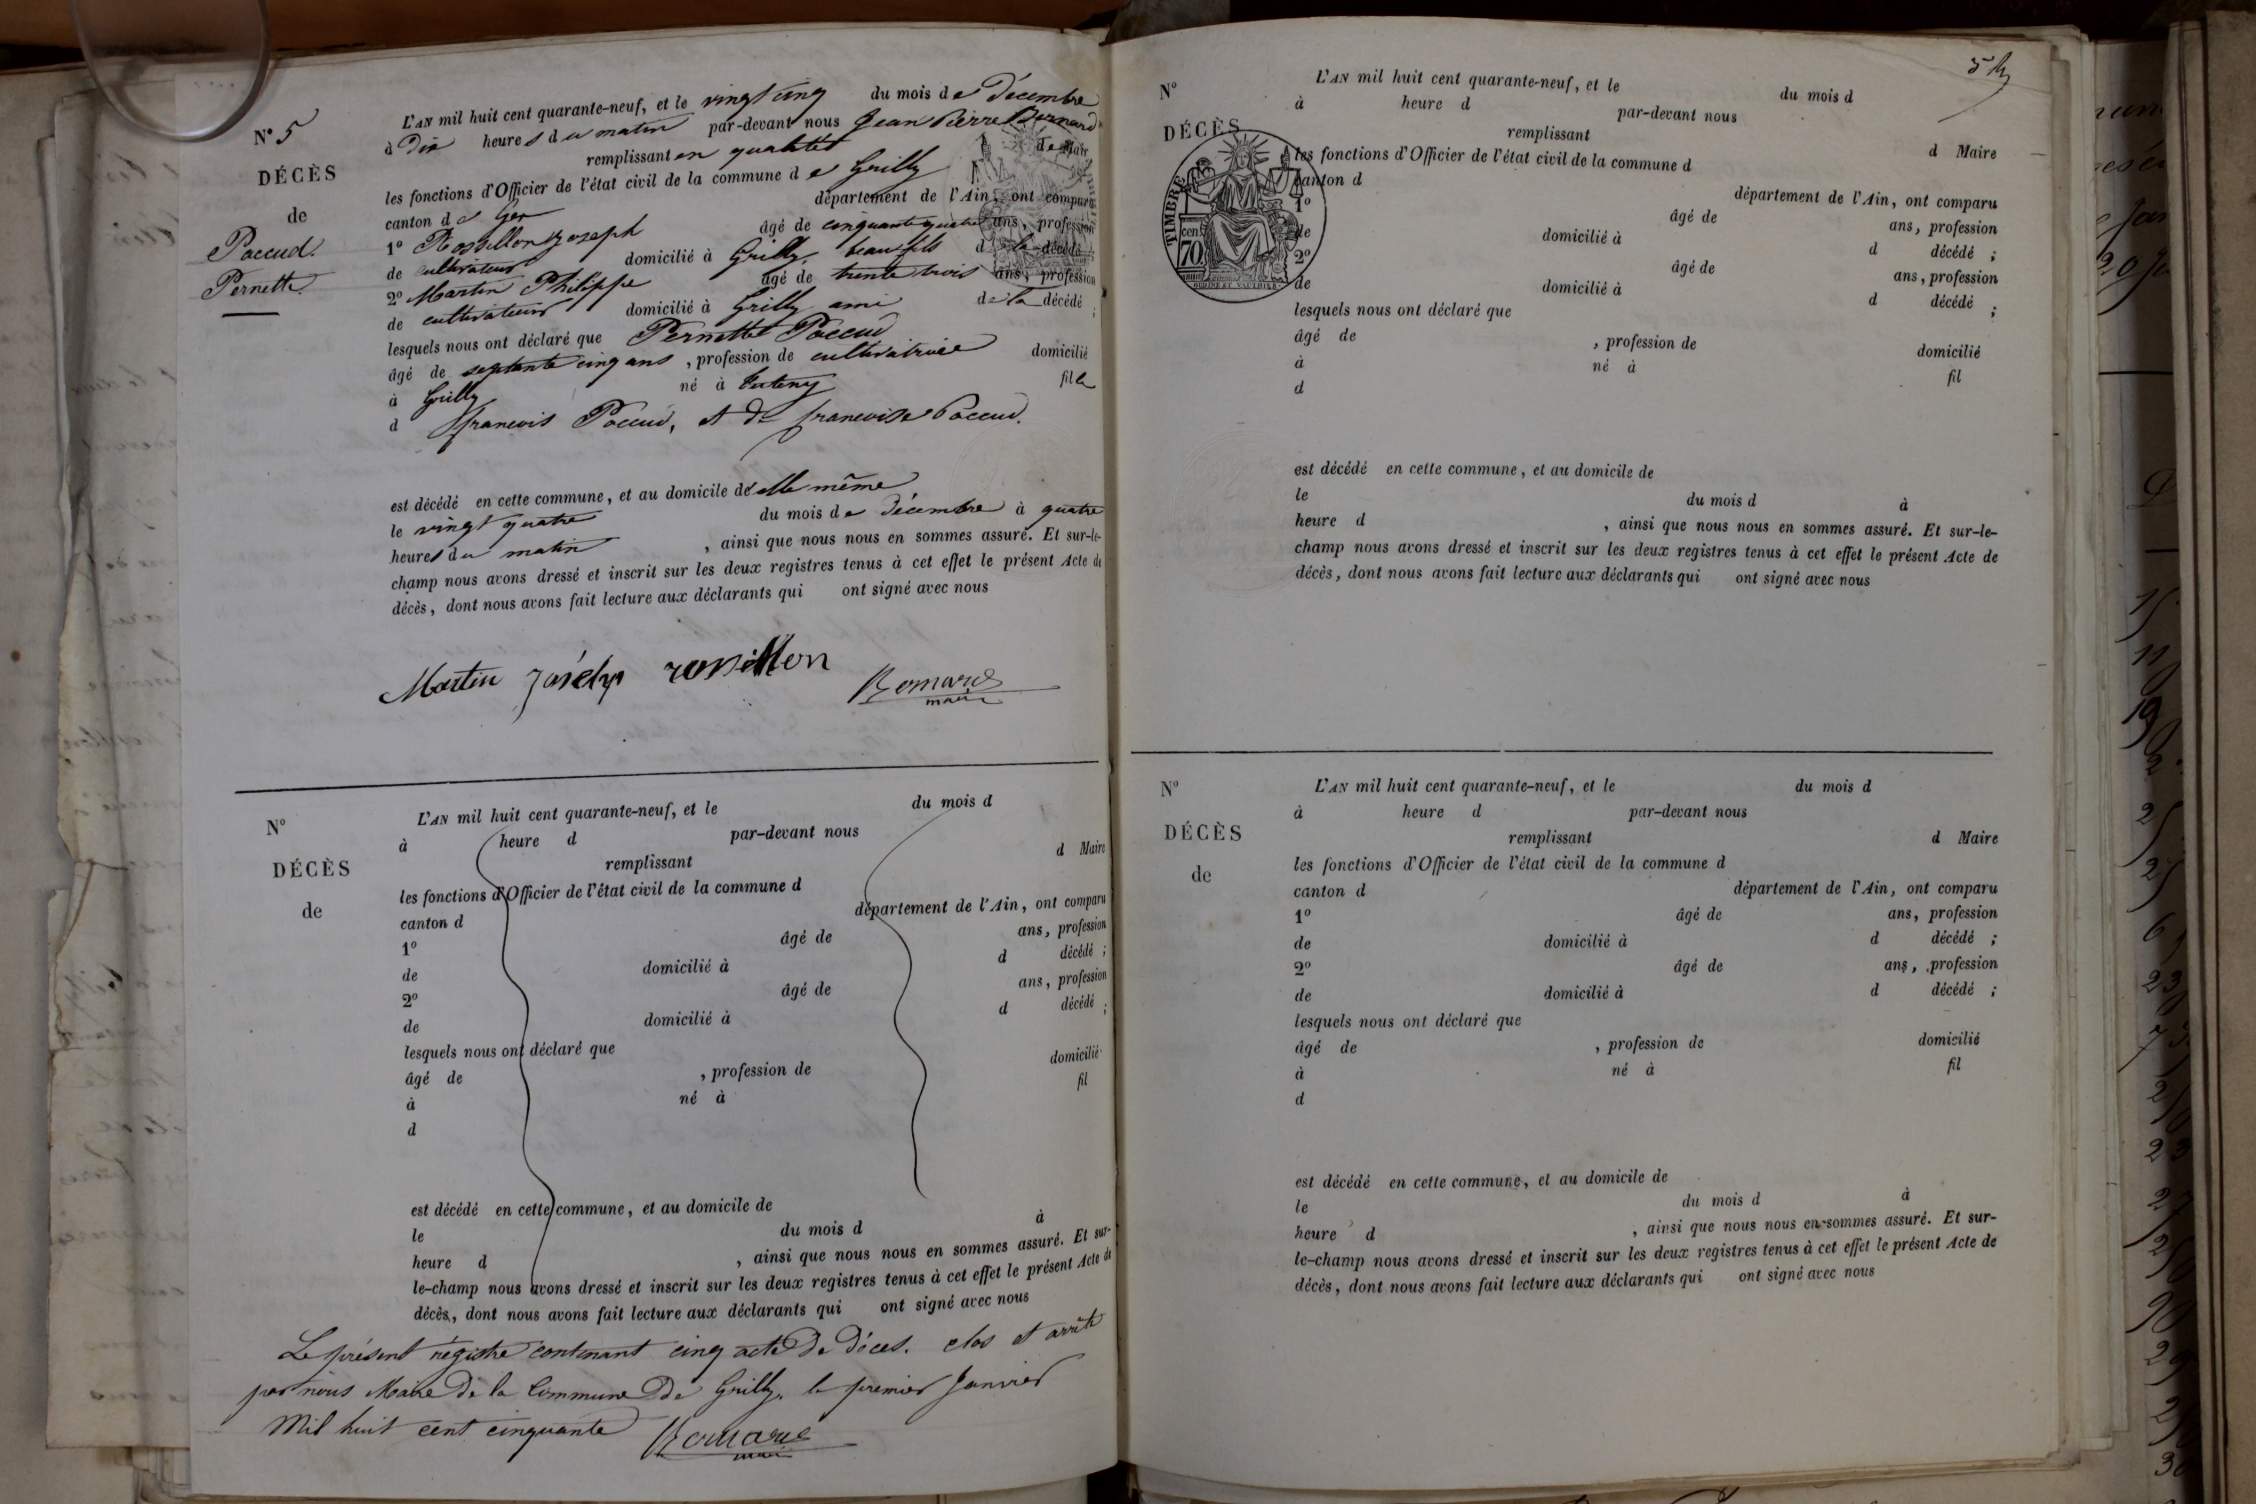 N° 5
DÉCÈS
de
Paccud
Pernette
L'AN mil huit cent quarante-neuf, et le vingt cinq du mois de Décembre
à dix heures du matin par-devant nous Jean Pierre Bernard
remplissant en qualité de Maire
les fonctions d'Officier de l'état civil de la commune de Grilly
canton de Gex département de l'Ain, ont comparu
1° Rossillon Joseph âgé de cinquante quatre ans, profession
de cultivateur domicilié à Grilly, beau fils de la décédé
2° Martin Philippe âgé de trente trois ans, profession
de cultivateur domicilié à Grilly ami de la décédé ;
lesquels nous ont déclaré que Pernette Paccud
âgé de septante cinq ans , profession de cultivatrice domicilié
à Grilly né à fille
d françois Paccud, et de françoise Paccud.
est décédé en cette commune, et au domicile de elle même
le vingt quatre du mois de décembre à quatre
heures du matin , ainsi que nous nous en sommes assuré. Et sur-le-
champ nous avons dressé et inscrit sur les deux registres tenus à cet effet le présent Acte de
décès, dont nous avons fait lecture aux déclarants qui ont signé avec nous
Martin Josehp rossillon Bernard
maire
N°
DÉCÈS
de
L'AN mil huit cent quarante-neuf, et le du mois d
à heure d par-devant nous
remplissant d Maire
les fonctions d'Officier de l'état civil de la commune d
canton d département de l'Ain, ont comparu
1° âgé de ans, profession
de domicilié à d décédé ;
2° âgé de ans, profession
de domicilié à d décédé ;
lesquels nous ont déclaré que
âgé de , profession de domicilié
à né à fil
d
est décédé en cette commune, et au domicile de
le du mois d à
heure d , ainsi que nous nous en sommes assuré. Et sur-
le-champ nous avons dressé et inscrit sur les deux registres tenus à cet effet le présent Acte de
décès, dont nous avons fait lecture aux déclarants qui ont signé avec nous
Le présent régistre contenant cinq acte de décès. clos et arrêté
par nous Maire de la Commune de Grilly, le premier Janvier
Mil huit cent cinquante Bernard
maire
N°
DÉCÈS
TIMBRE
70 cen.
L'AN mil huit cent quarante-neuf, et le du mois d
à heure d par-devant nous
remplissant d Maire
les fonctions d'Officier de l'état civil de la commune d
canton d département de l'Ain, ont comparu
1° âgé de ans, profession
de domicilié à d décédé ;
2° âgé de ans, profession
de domicilié à d décédé ;
lesquels nous ont déclaré que
âgé de , profession de domicilié
à né à fil
d
est décédé en cette commune, et au domicile de
le du mois d à
heure d , ainsi que nous nous en sommes assuré. Et sur-le-
champ nous avons dressé et inscrit sur les deux registres tenus à cet effet le présent Acte de
décès, dont nous avons fait lecture aux déclarants qui ont signé avec nous
N°
DÉCÈS
de
L'AN mil huit cent quarante-neuf, et le du mois d
à heure d par-devant nous
remplissant d Maire
les fonctions d'Officier de l'état civil de la commune d
canton d département de l'Ain, ont comparu
1° âgé de ans, profession
de domicilié à d décédé ;
2° âgé de ans, profession
de domicilié à d décédé ;
lesquels nous ont déclaré que
âgé de , profession de domicilié
à né à fil
d
est décédé en cette commune, et au domicile de
le du mois d à
heure d , ainsi que nous nous en sommes assuré. Et sur-
le-champ nous avons dressé et inscrit sur les deux registres tenus à cet effet le présent Acte de
décès, dont nous avons fait lecture aux déclarants qui ont signé avec nous